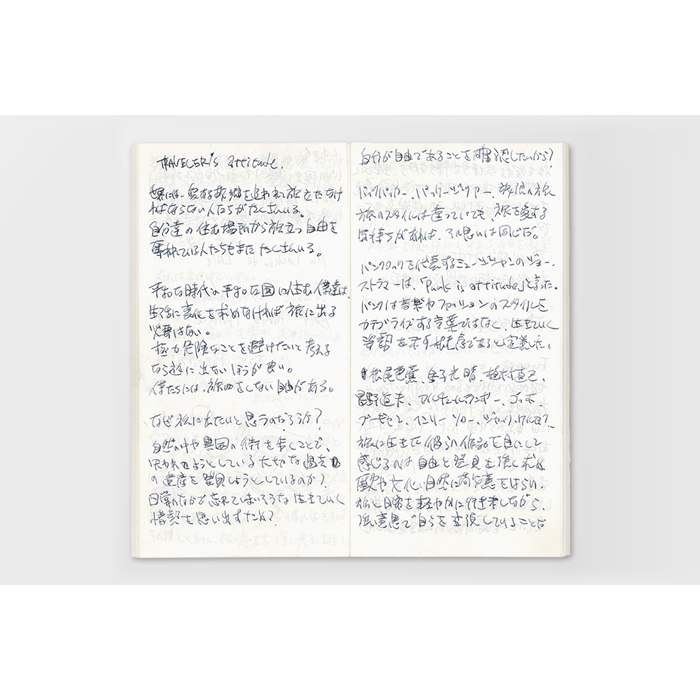 TRAVELER's attitude.
世界には、愛する故郷を追われ旅立たなけ
ればならない人たちがたくさんいる。
自分達の住む場所から旅立つ自由を
奪われている人たちもまたたくさんいる。
平和な時代の平和な国に住む僕達は、
生活に変化を求めなければ旅に出る
必要はない。
極力危険なことを避けたいと考える
なら旅に出ないほうが良い。
僕たちには、旅をしない自由がある。
なぜ旅に出たいと思うのだろうか?
自然の中や異国の街を歩くことで、
失われようとしている大切な過去
の遺産を発見しようとしているのか?
日常のなかで忘れてしまいそうな生きていく
情熱を思い出すため?
自分が自由であることを確認したいから?
バックパッカー、パッケージツアー、放浪の旅
旅のスタイルは違っていても、旅を愛する
気持ちがあれば、その思いは同じだ。
パンクロックを代表するミュージシャンのジョー・
ストラマーは、「Punk is attitude」と言った。
パンクは音楽やファッションのスタイルを
カテゴライズする言葉ではなく、生きていく
姿勢を示す言葉であると定義した。
松尾芭蕉、金子光晴、植村直己、
星野道夫、アルチュール・ランボー、ゴッホ、
ゴーギャン、ヘンリー・ソロー、ジャック・ケルアック。
旅に生きた彼らの作品を目にして
感じるのは自由と発見を強く求め
歴史や文化、自然に敬意をはらい、
旅と日常を軽やかに行き来しながら、
強い意思で自らを表現していることだ